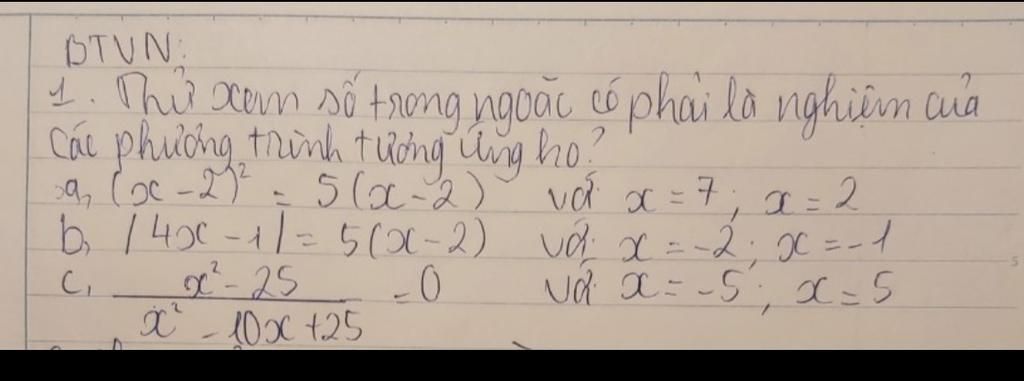 BTVN:
1. Thử xem số trong ngoăc có phải là nghiệm của
các phương trình tương ứng ko?
a, (x-2)² = 5(x-2) với x=7; x=2
b, |4x-1| = 5(x-2) với x=-2; x=-1
c, x²-25 / x²-10x+25 =0 với x=-5; x=5